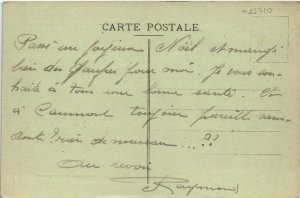 CARTE POSTALE
Passé un joyeux Noël et mangé
bien des gaufres pour moi. Je vous sou-
haite à tous une bonne santé. Et
à Caumont toujours pareille sans-
doute ? rien de nouveau ... ??
Au revoir
Raymond